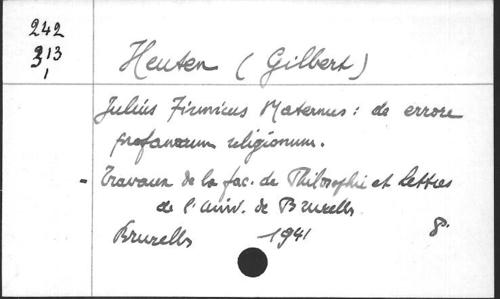 242
313
1
Heuten (Gilbert)
Julius Firmicus Maternus : de errore
profanarum religionum.
- Travaux de la fac. de Philosophie et Lettres
de l'Univ. de Bruxelles
Bruxelles 1941 8°.